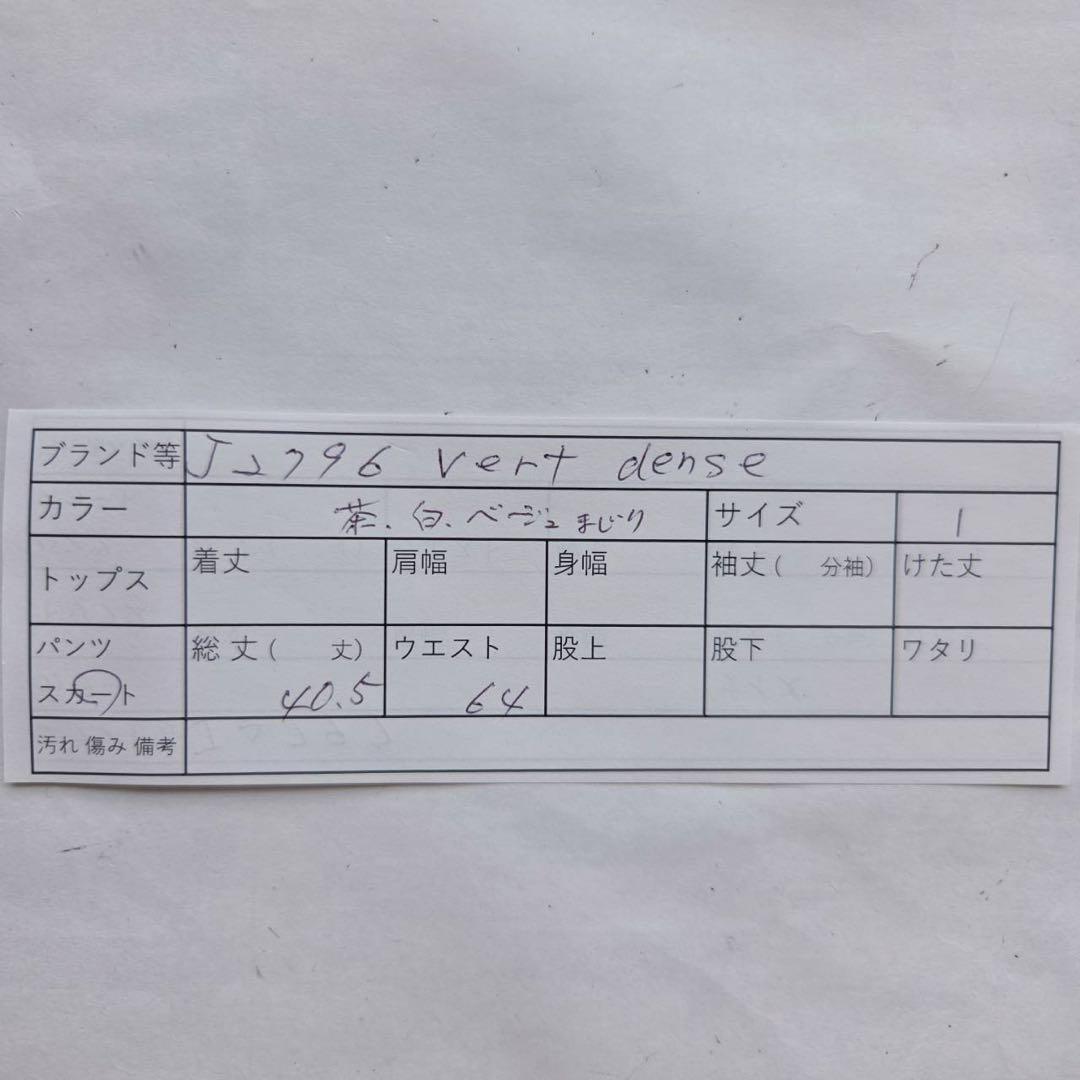 ブランド等 J2796 vert dense
カラー 茶、白、ベージュまじり サイズ 1
トップス 着丈 肩幅 身幅 袖丈( 分袖) けた丈
パンツ 総丈( 丈) ウエスト 股上 股下 ワタリ
スカート 40.5 64
汚れ 傷み 備考